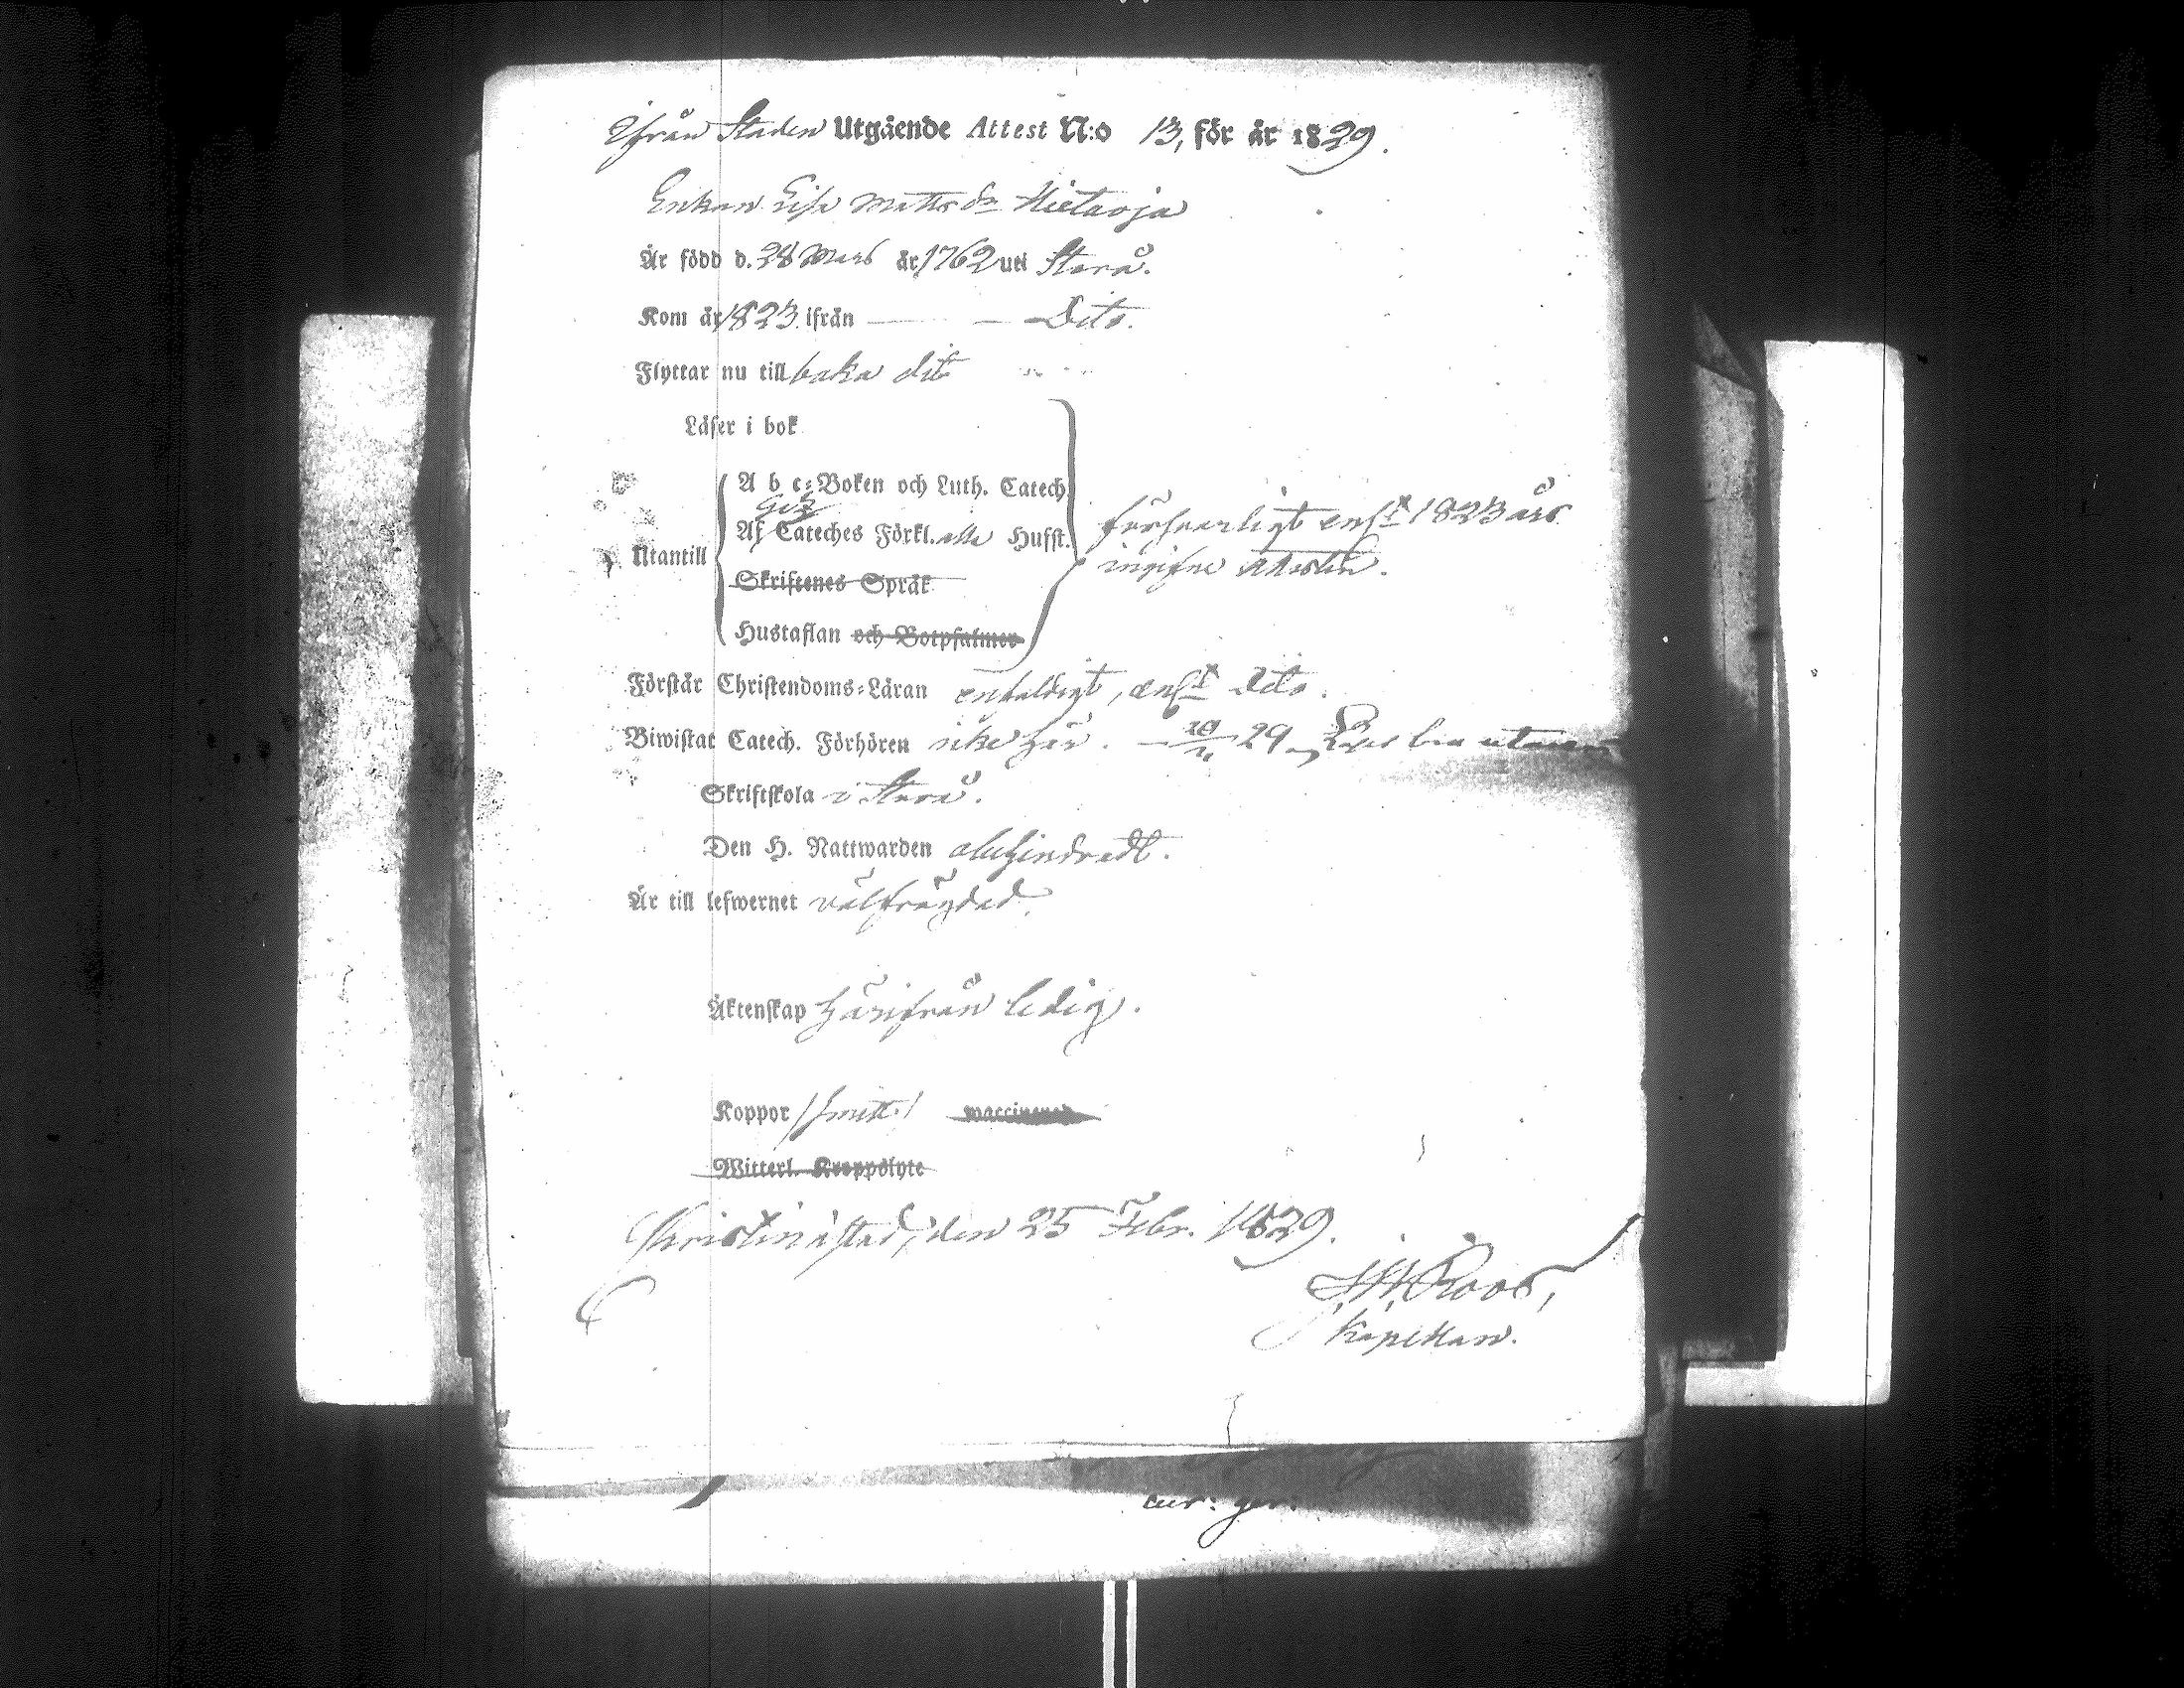 Ifrån Staden Utgående Attest N:o 13, för år 1829.
Enkan Lisa Mattsdr Hietaoja
Är född d. 28 Mars år 1762 uti Storå.
Kom år 1823 ifrån — — Dito.
Flyttar nu till baka dit
Läser i bok
A b c-Boken och Luth. Catech.
Af Cateches Förkl. alla Husst.
Utantill
försvarligt enl. 1823 års
ingifne attesten.
Skriftenes Språk
Hustaflan och Botpsalmer
Förstår Christendoms-Läran enfaldigt, enl. dito.
Biwistat Catech. Förhören icke här. 29
Skriftskola i Storå.
Den H. Nattwarden obehindradt.
Är till lefwernet välfrägdad.
Äktenskap härifrån ledig.
Koppor /haft/ waccinerad
Witterl. Kroppslyte
Christinæstad, den 25 Febr. 1829.
Roos,
Kapellan.